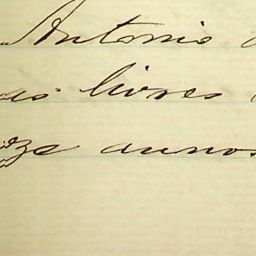 Antonio
as livres
ze annos